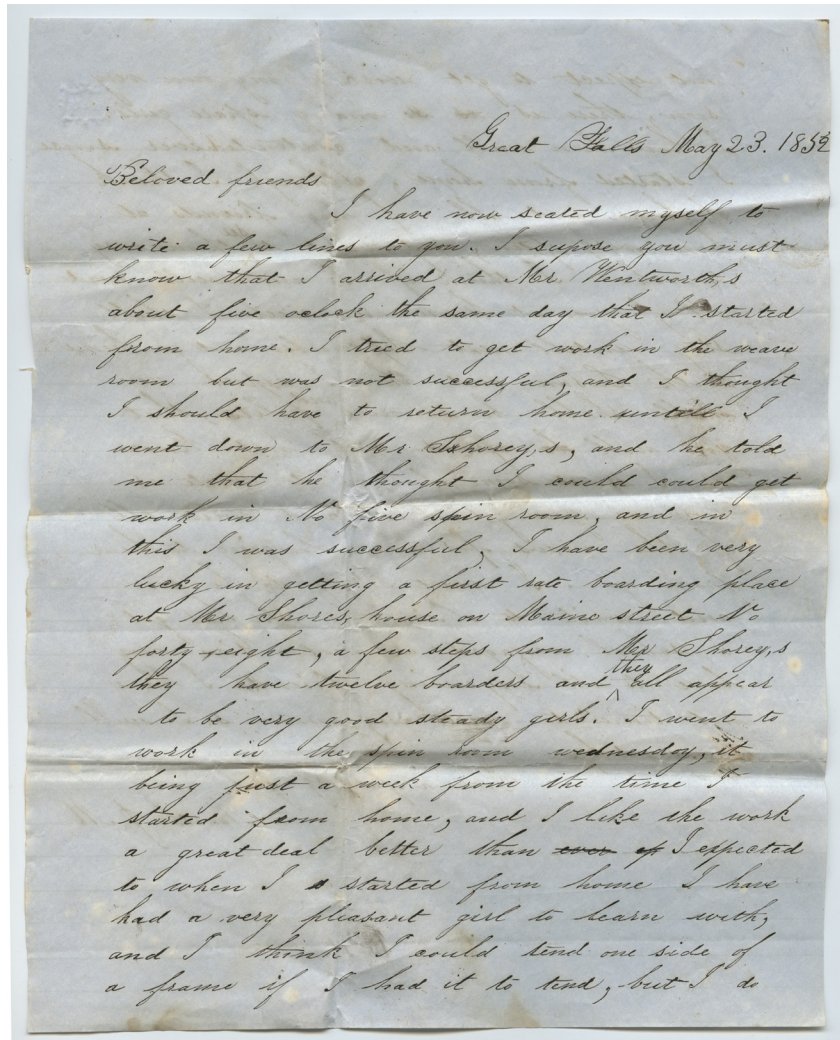 Great Falls May 23. 1852
Beloved friends
I have now seated myself to
write a few lines to you. I supose you must
know that I arrived at Mr Wentworth,s
about five oclock the same day that I started
from home. I tried to get work in the weave
room but was not successful, and I thought
I should have to return home untill I
went down to Mr Shorey,s, and he told
me that he thought I could could get
work in No five spin room, and in
this I was successful, I have been very
lucky in getting a first rate boarding place
at Mr Shores, house on Maine street No
forty eight, a few steps from Mr Shorey,s
they have twelve boarders and they all appear
to be very good steady girls. I went to
work in the spin room wednesday, it
being just a week from the time I
started from home, and I like the work
a great deal better than ever I expected
to when I started from home I have
had a very pleasant girl to learn with,
and I think I could tend one side of
a frame if I had it to tend, but I do